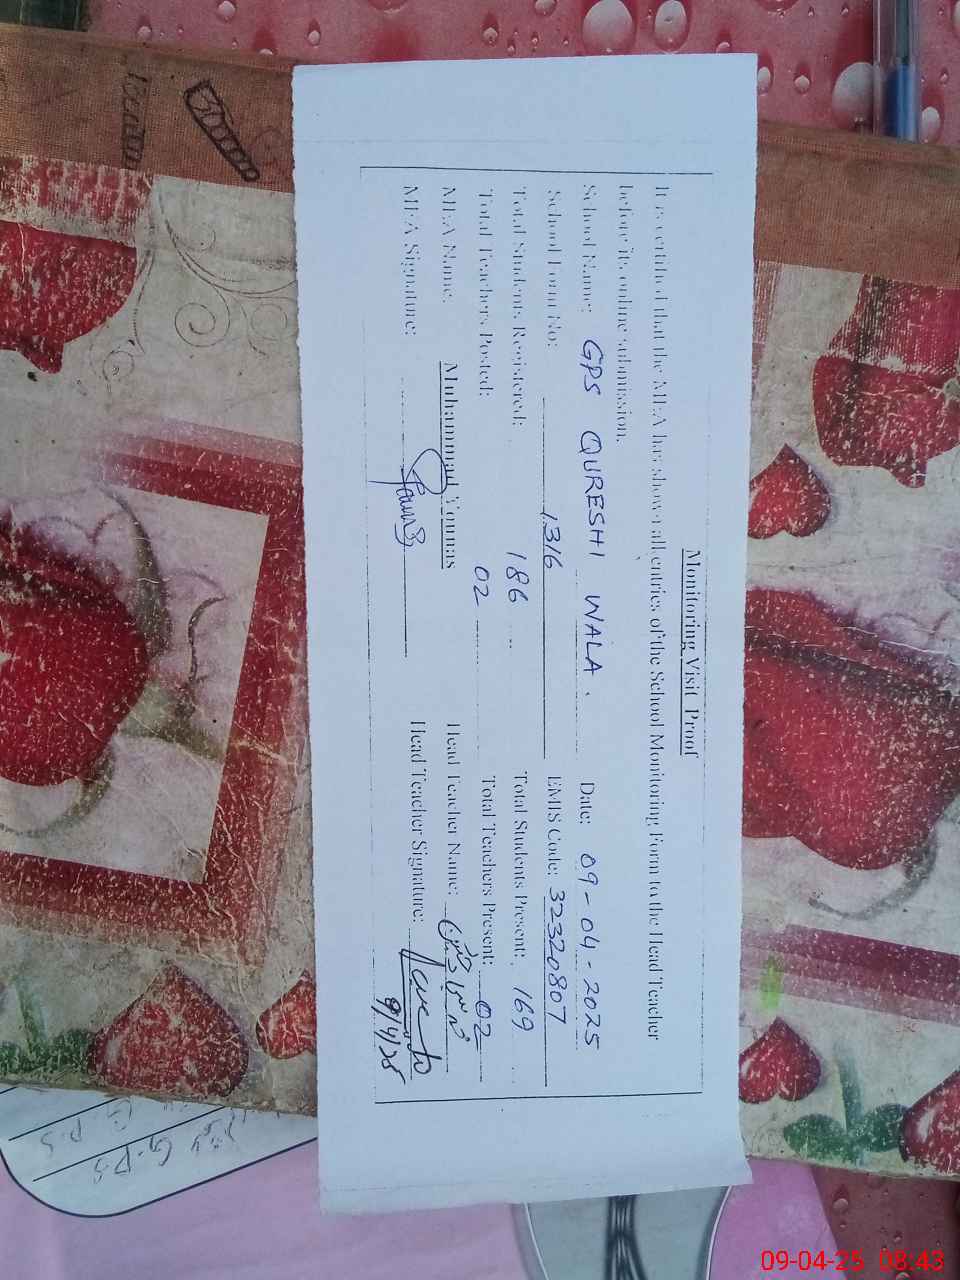 Monitoring Visit Proof
It is certified that the MEA has shown all entries of the School Monitoring Form to the Head Teacher
before its online submission.
School Name: GPS QURESHI WALA . Date: 09-04-2025
School Form No: 1316 EMIS Code: 32320807
Total Students Registered: 186 Total Students Present: 169
Total Teachers Posted: 02 Total Teachers Present: 02
MEA Name: Muhammad Younas Head Teacher Name:
MEA Signature: Head Teacher Signature:
9/4/25
G.P.S
G.P.S
09-04-25 08:43